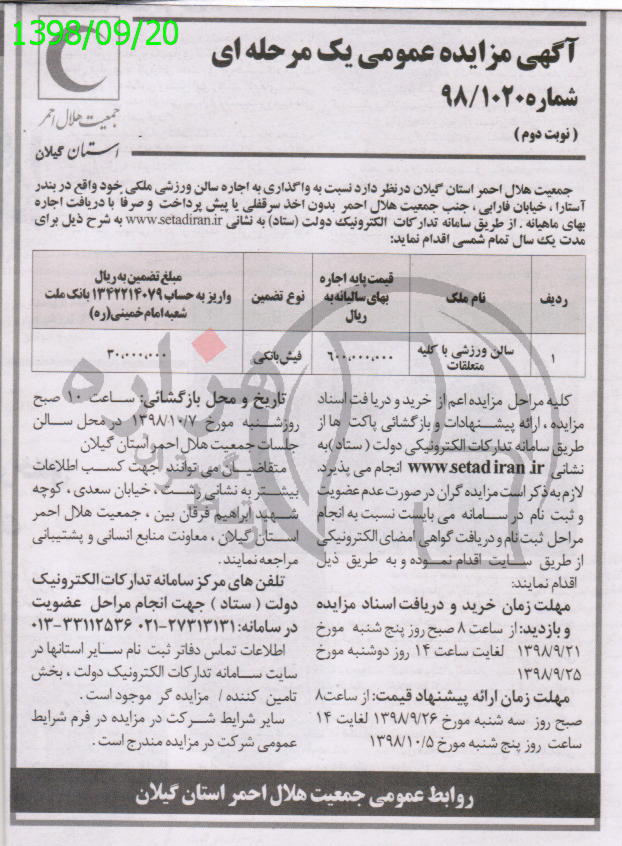 1398/09/20
آگهی مزایده عمومی یک مرحله ای
شماره ۹۸/۱۰۲۰
( نوبت دوم )
جمعیت هلال احمر
استان گیلان
جمعیت هلال احمر استان گیلان درنظر دارد نسبت به واگذاری به اجاره سالن ورزشی ملکی خود واقع در بندر
آستارا ، خیابان فارابی ، جنب جمعیت هلال احمر بدون اخذ سرقفلی یا پیش پرداخت و صرفا با دریافت اجاره
بهای ماهیانه . از طریق سامانه تدارکات الکترونیک دولت (ستاد) به نشانی www.setadiran.ir به شرح ذیل برای
مدت یک سال تمام شمسی اقدام نماید:
ردیف
نام ملک
قیمت پایه اجاره
بهای سالیانه به
ریال
نوع تضمین
مبلغ تضمین به ریال
واریز به حساب ۱۳۴۲۲۱۴۰۷۹ بانک ملت
شعبه امام خمینی (ره)
۱
سالن ورزشی با کلیه
متعلقات
۶۰۰,۰۰۰,۰۰۰
فیش بانکی
۳۰,۰۰۰,۰۰۰
کلیه مراحل مزایده اعم از خرید و دریافت اسناد
مزایده ، ارائه پیشنهادات و بازگشائی پاکت ها از
طریق سامانه تدارکات الکترونیکی دولت ( ستاد) به
نشانی www.setadiran.ir انجام می پذیرد.
لازم به ذکر است مزایده گران در صورت عدم عضویت
و ثبت نام در سامانه می بایست نسبت به انجام
مراحل ثبت نام و دریافت گواهی امضای الکترونیکی
از طریق سایت اقدام نموده و به طریق ذیل
اقدام نمایند:
مهلت زمان خرید و دریافت اسناد مزایده
و بازدید: از ساعت ۸ صبح روز پنج شنبه مورخ
۱۳۹۸/۹/۲۱ لغایت ساعت ۱۴ روز دوشنبه مورخ
۱۳۹۸/۹/۲۵
مهلت زمان ارائه پیشنهاد قیمت: از ساعت۸
صبح روز سه شنبه مورخ ۱۳۹۸/۹/۲۶ لغایت ۱۴
ساعت روز پنج شنبه مورخ ۱۳۹۸/۱۰/۵
تاریخ و محل بازگشائی: ساعت ۱۰ صبح
روزشنبه مورخ ۱۳۹۸/۱۰/۷ در محل سالن
جلسات جمعیت هلال احمر استان گیلان
متقاضیان می توانند جهت کسب اطلاعات
بیشتر به نشانی رشت ، خیابان سعدی ، کوچه
شهید ابراهیم فرقان بین ، جمعیت هلال احمر
استان گیلان ، معاونت منابع انسانی و پشتیبانی
مراجعه نمایند.
تلفن های مرکز سامانه تدارکات الکترونیک
دولت ( ستاد ) جهت انجام مراحل عضویت
در سامانه: ۲۷۳۱۳۱۳۱-۰۲۱ ۳۳۱۱۲۵۳۶-۰۱۳
اطلاعات تماس دفاتر ثبت نام سایر استانها در
سایت سامانه تدارکات الکترونیک دولت ، بخش
تامین کننده / مزایده گر موجود است .
سایر شرایط شرکت در مزایده در فرم شرایط
عمومی شرکت در مزایده مندرج است .
روابط عمومی جمعیت هلال احمر استان گیلان
هزاره